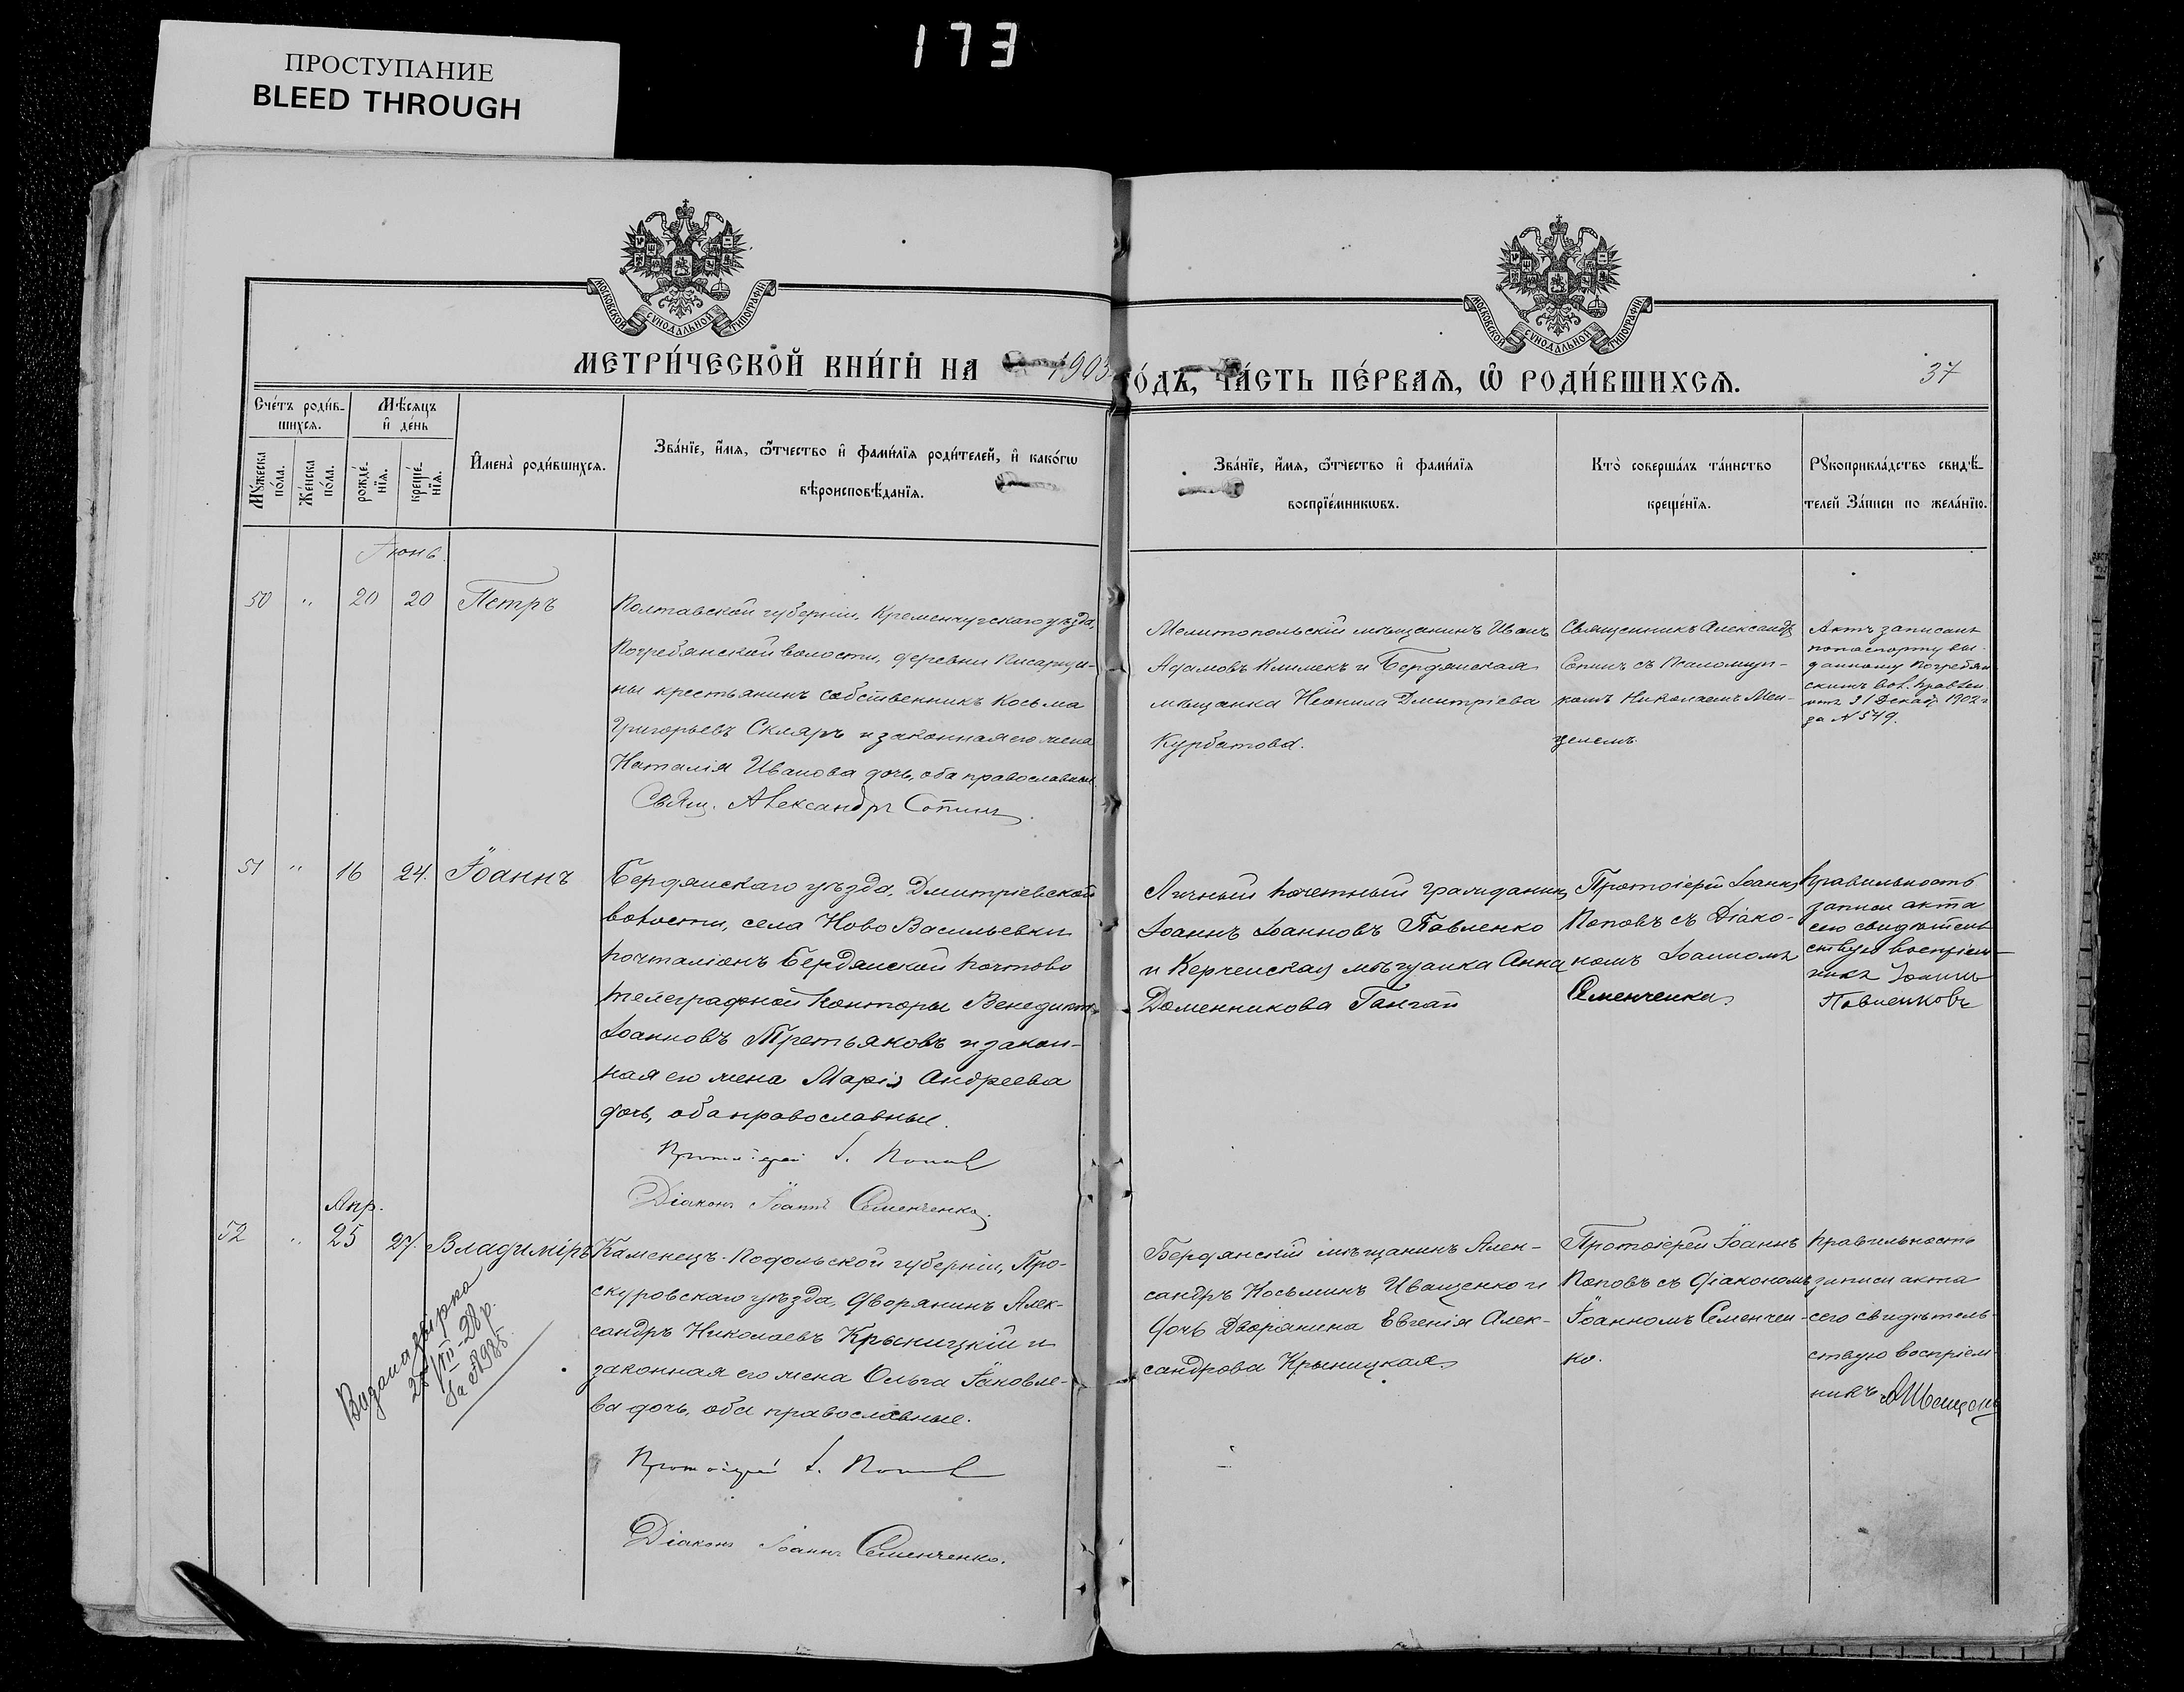 173
ПРОСТУПАНИЕ
BLEED THROUGH
МОСКОВСКОЙ СѴНОДАЛЬНОЙ ТИПОГРАФІИ
МОСКОВСКОЙ СѴНОДАЛЬНОЙ ТИПОГРАФІИ
МЕТРИ́ЧЕСКОЙ КНИ́ГИ НА 1903 го́дъ, ЧА́СТЬ ПЕ́РВАѦ, Ѡ҆ РОДИ́ВШИХСѦ.
37
Сче́тъ роди́в-
шихсѧ.
Мѣ́сѧцъ
и҆ де́нь
Мꙋ́жеска
по́ла.
Же́нска
по́ла.
рожде́-
нїѧ.
креще́-
нїѧ.
И҆мена̀ роди́вшихсѧ.
Зва́нїе, и҆́мѧ, ѻ҆́тчество и҆ фами́лїѧ роди́телей, и҆ како́гѡ
вѣроисповѣ́данїѧ.
Зва́нїе, и҆́мѧ, ѻ҆́тчество и҆ фами́лїѧ
воспрїе́мникѡвъ.
Кто̀ соверша́лъ та́инство
креще́нїѧ.
Рꙋкоприкла́дство свидѣ́-
телей За́писи по жела́нїю.
Іюнь
50 " 20 20 Петръ
Полтавской губерніи, Кременчугскаго уѣзда,
Погребянской волости, деревни Писарщи-
ны крестьянинъ собственникъ Косьма
Григорьевъ Скляръ и законная его жена
Наталія Иванова дочь, оба православные
Свящ. Александръ Сопинъ.
Мелитопольскій мѣщанинъ Иванъ
Адамовъ Климекъ и Бердянская
мѣщанка Неонила Дмитріева
Курбатова.
Священникъ Александръ
Сопинъ съ Псаломщи-
комъ Николаемъ Мен-
целемъ.
Актъ записанъ
по паспорту вы-
данному Погребян
скимъ вол. правлен
отъ 31 Декаб. 1902 г
за № 549.
51 " 16 24. Іоаннъ
Бердянскаго уѣзда, Дмитріевской
волости, села Ново Васильевки
почталіонъ Бердянской почтово
телеграфной Конторы Венедиктъ
Іоанновъ Третьяковъ и закон-
ная его жена Марія Андреева
дочь, оба православные.
Протоіерей І. Поповъ
Діаконъ Іоаннъ Семенченко.
Личный почетный гражданинъ
Іоаннъ Іоанновъ Павленко
и Керченская мѣщанка Анна
Доменникова Гангай
Протоіерей Іоаннъ
Поповъ съ Діако-
номъ Іоанномъ
Семенченко.
Правильность
записи акта
сего свидѣтель
ствую воспріем-
никъ Іоаннъ
Павленковъ
Апр.
52 " 25 27. Владиміръ
Каменецъ-Подольской губерніи, Про-
скуровскаго уѣзда, дворянинъ Алек-
сандръ Николаевъ Крыницкій и
законная его жена Ольга Іаковле-
ва дочь, оба православные.
Протоіерей І. Поповъ
Діаконъ Іоаннъ Семенченко.
Бердянскій мѣщанинъ Алек-
сандръ Косьминъ Иващенко и
дочь Дворянина Евгенія Алек-
сандрова Крыницкая.
Протоіерей Іоаннъ
Поповъ съ діакономъ
Іоанномъ Семенчен-
ко.
Правильность
записи акта
сего свидѣтель-
ствую воспріем-
никъ АИващенко
Видана
28/VII-28 р.
За № 985